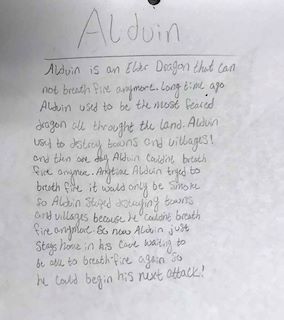 Alduin
Alduin is an Elder Dragon that can
not breath fire anymore. Long time ago
Alduin used to be the most feared
dragon all throught the land. Alduin
used to destroy towns and villages!
and then one day Alduin couldnt breath
fire anymore. Anytime Alduin tryed to
breath fire it would only be smoke
so Alduin stoped destroying towns
and villages because he couldnt breath
fire anymore. So now Alduin just
stays home in his cave waiting to
be able to breath fire again so
he could begin his next attack!